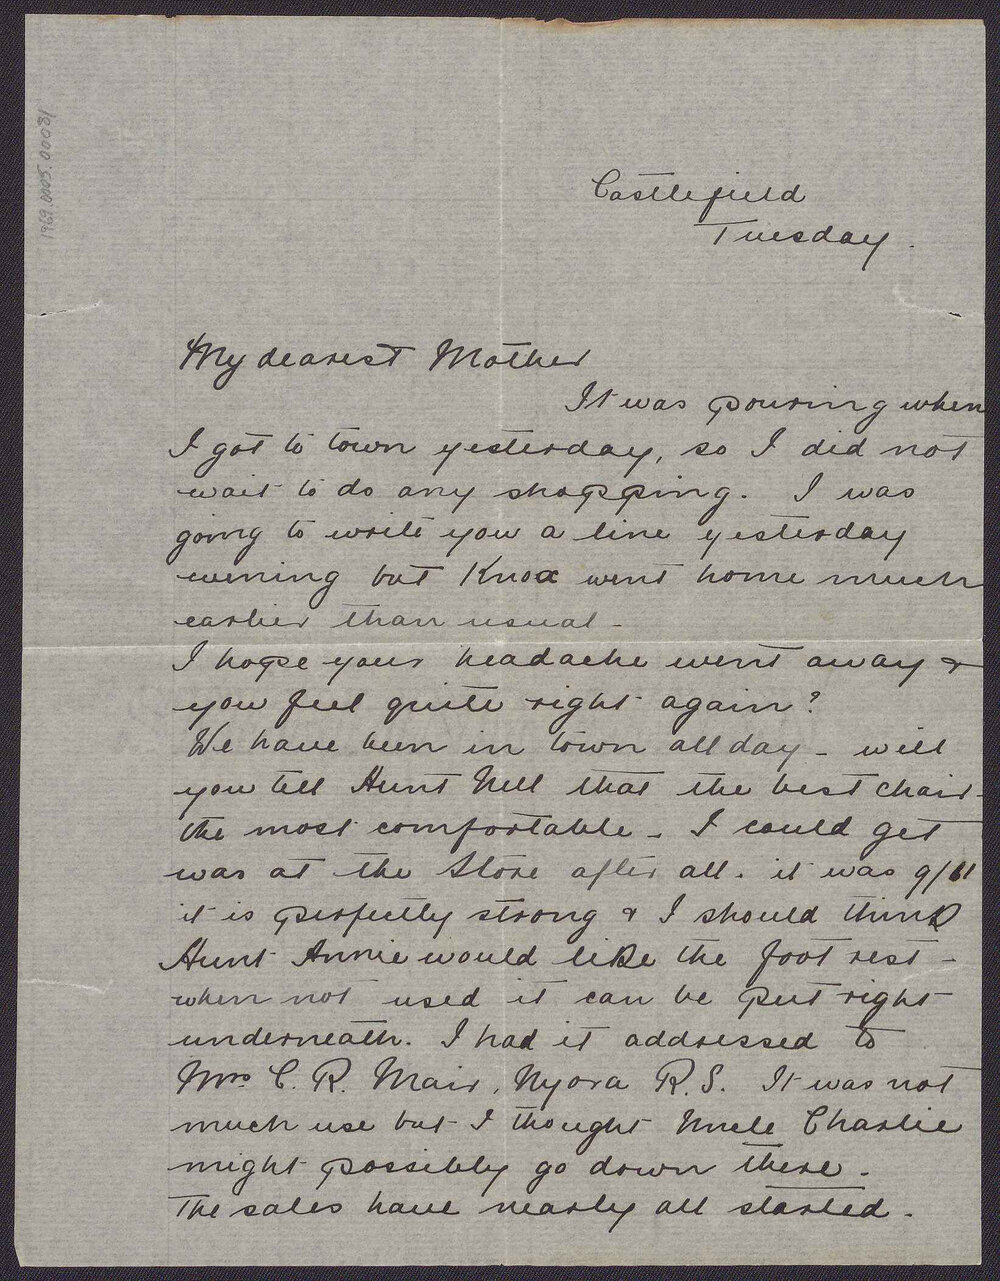 1969.0005.00081
Castlefield
Tuesday.
My dearest Mother
It was pouring when
I got to town yesterday, so I did not
wait to do any shopping. I was
going to write you a line yesterday
evening but Knox went home much
earlier than usual -
I hope your headache went away &
you feel quite right again?
We have been in town all day - will
you tell Aunt Nell that the best chair -
the most comfortable - I could get
was at the Store after all. it was 9/11
it is perfectly strong & I should think
Aunt Annie would like the foot rest -
when not used it can be put right
underneath. I had it addressed to
Mrs C. R. Mair, Nyora R.S. It was not
much use but I thought Uncle Charlie
might possibly go down there.
The sales have nearly all started.